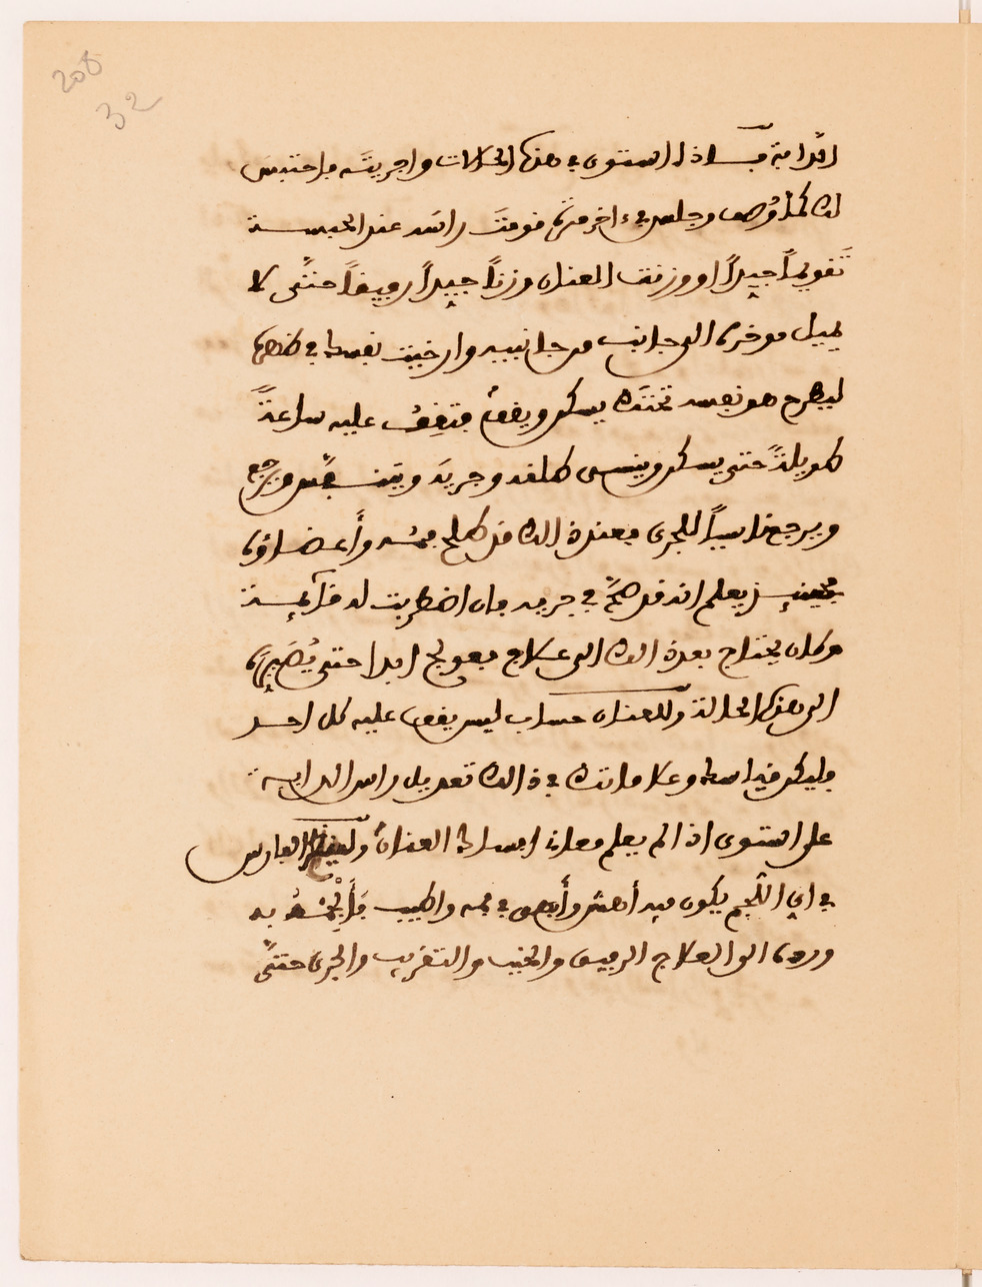 208
32
الدابة فاذا استوى في هذه الحالات واجريته فاحتبس
لك كما وصف وجلس في ءاخر قومت راسه عند الحبسة
تقويماً جيداً او وزنت العنان وزناً جيداً رفيفاً حتى لا
يميل موخره الى جانب من جانبيه وارخيت نفسك في ظهره
ليطرح هو نفسه تحتك يسكن ويقف فتقف عليه ساعةً
طويلةً حتى يسكن وينسى طلقه وجريه ويتنفس ويرجع
ويرجع ناسياً للجرى فعند ذلك قد صلح فمه وأعضاؤه
فحينئذ يعلم انه قد صحَّ في جريه فان اضطربت له قآئمة
وكان يحتاج بعد ذلك الى علاج فعولج ابدا حتى يُصَيره
الى هذه الحالة وللعنان حساب ليس يقف عليه كل احد
فليكن قياسك وعلاماتك في ذلك تعديل راس الدابة
على استوى اذا لم يعلم معان امساك العنان ولينظر الفارس
في اي اللجم يكون فيه أهش وأ في فمه واطيب به
ورده الى العلاج الرفيق والخبب والتقريب والجرى حتى